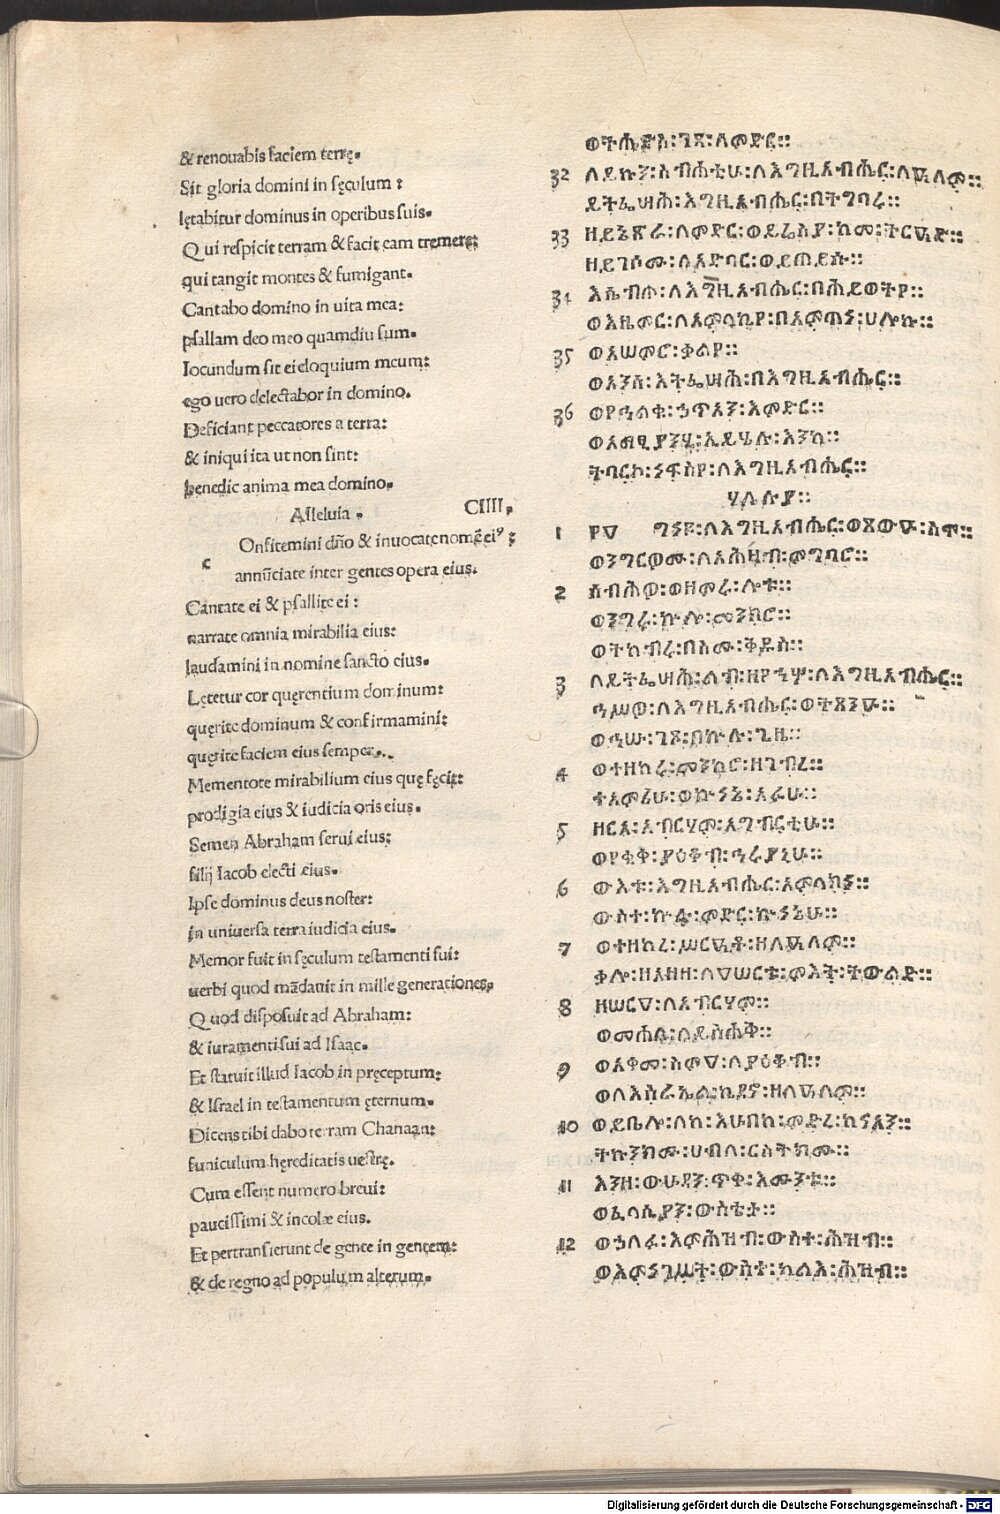 & renouabis faciem terrę.
Sit gloria domini in sęculum:
lętabitur dominus in operibus suis.
Qui respicit terram & facit eam tremere:
qui tangit montes & fumigant.
Cantabo domino in uita mea:
psallam deo meo quamdiu sum.
Iocundum sit ei eloquium meum:
ego uero delectabor in domino.
Deficiant peccatores a terra:
& iniqui ita ut non sint:
benedic anima mea domino.
Alleluia. CIIII.
c Onfitemini dño & inuocate nomẽ ei⁹:
annũciate inter gentes opera eius.
Cantate ei & psallite ei:
narrate omnia mirabilia eius:
laudamini in nomine sancto eius.
Lętetur cor quęrentium dominum:
quęrite dominum & confirmamini:
quęrite faciem eius semper.
Mementote mirabilium eius quę fęcit:
prodigia eius & iudicia oris eius.
Semen Abraham serui eius:
filij Iacob electi eius.
Ipse dominus deus noster:
in uniuersa terra iudicia eius.
Memor fuit in sęculum testamenti sui:
uerbi quod mãdauit in mille generationes.
Quod disposuit ad Abraham:
& iuramenti sui ad Isaac.
Et statuit illud Iacob in pręceptum:
& Israel in testamentum ęternum.
Dicens tibi dabo terram Chanaan:
funiculum hęreditatis uestrę.
Cum essent numero breui:
paucissimi & incolæ eius.
Et pertransierunt de gente in gentem:
& de regno ad populum alterum.
ወትሔድስ፡ገጸ፡ለምድር።
32 ለይኩን፡ስብሐቲሁ፡ለእግዚአብሔር፡ለዓለም።
ይትፌሣሕ፡እግዚአብሔር፡በትግባሩ።
33 ዘይኔጽራ፡ለምድር፡ወይሬስያ፡ከመ፡ትርዓድ።
ዘይገሶሙ፡ለአድባር፡ወይጠይሱ።
34 እሴብሖ፡ለእግዚአብሔር፡በሕይወትየ።
ወእዜምር፡ለአምላኪየ፡በአምጣነ፡ሀሎኩ።
35 ወአሠምሮ፡ቃልየ።
ወአንሰ፡እትፌሣሕ፡በእግዚአብሔር።
36 ወየኀልቁ፡ኃጥአን፡እምድር።
ወአማፂያንሂ፡ኢይሄሉ፡እንከ።
ትባርኮ፡ነፍስየ፡ለእግዚአብሔር።
ሃሌሉያ።
1 ፻፬ ግነዩ፡ለእግዚአብሔር፡ወጸውዑ፡ስሞ።
ወንግርዎሙ፡ለአሕዛብ፡ምግባሮ።
2 ሰብሕዎ፡ወዘምሩ፡ሎቱ።
ወንግሩ፡ኵሎ፡መንክሮ።
ወትከብሩ፡በስሙ፡ቅዱስ።
3 ለይትፌሣሕ፡ልብ፡ዘየኀሦ፡ለእግዚአብሔር።
ኅሥዎ፡ለእግዚአብሔር፡ወትጸንዑ።
ወኅሡ፡ገጾ፡በኵሉ፡ጊዜ።
4 ወተዘከሩ፡መንክሮ፡ዘገብረ።
ተአምሪሁ፡ወኵነኔ፡አፉሁ።
5 ዘርአ፡አብርሃም፡አግብርቲሁ።
ወደቂቀ፡ያዕቆብ፡ኅሩያኒሁ።
6 ውእቱ፡እግዚአብሔር፡አምላክነ።
ውስተ፡ኵሉ፡ምድር፡ኵነኔሁ።
7 ወተዘከረ፡ሥርዓቶ፡ዘለዓለም።
ቃሎ፡ዘአዘዘ፡ለዐሠርቱ፡ምእት፡ትውልድ።
8 ዘሠርዐ፡ለአብርሃም።
ወመሐለ፡ለይስሐቅ።
9 ወአቀመ፡ስምዐ፡ለያዕቆብ።
ወለእስራኤል፡ኪዳኖ፡ዘለዓለም።
10 ወይቤሎ፡ለከ፡እሁበከ፡ምድረ፡ከነአን።
ትኩንክሙ፡ሀብለ፡ርስትክሙ።
11 እንዘ፡ውሁዳን፡ጥቀ፡እሙንቱ።
ወፈላሲያን፡ውስቴታ።
12 ወኃለፉ፡እምሕዝብ፡ውስተ፡ሕዝብ።
ወእምነገሥት፡ውስተ፡ካልእ፡ሕዝብ።
Digitalisierung gefördert durch die Deutsche Forschungsgemeinschaft - DFG